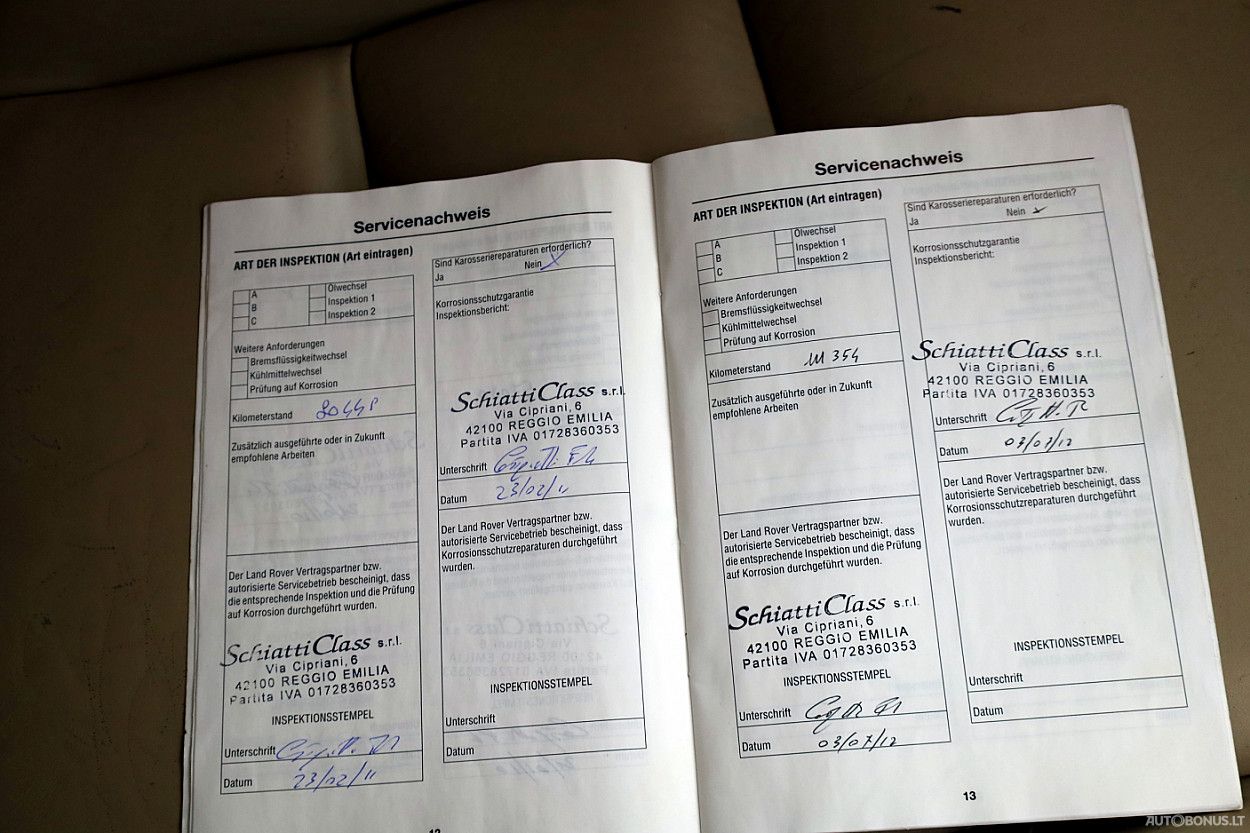 Servicenachweis
ART DER INSPEKTION (Art eintragen)
A
B
C
Ölwechsel
Inspektion 1
Inspektion 2
Weitere Anforderungen
Bremsflüssigkeitwechsel
Kühlmittelwechsel
Prüfung auf Korrosion
Kilometerstand
Zusätzlich ausgeführte oder in Zukunft
empfohlene Arbeiten
Der Land Rover Vertragspartner bzw.
autorisierte Servicebetrieb bescheinigt, dass
die entsprechende Inspektion und die Prüfung
auf Korrosion durchgeführt wurden.
Schiatti Class s.r.l.
Via Cipriani, 6
42100 REGGIO EMILIA
Partita IVA 01728360353
INSPEKTIONSSTEMPEL
Unterschrift
Datum 23/02/11
Sind Karosseriereparaturen erforderlich?
Ja Nein
Korrosionsschutzgarantie
Inspektionsbericht:
Schiatti Class s.r.l.
Via Cipriani, 6
42100 REGGIO EMILIA
Partita IVA 01728360353
Unterschrift
Datum 23/02/11
Der Land Rover Vertragspartner bzw.
autorisierte Servicebetrieb bescheinigt, dass
Korrosionsschutzreparaturen durchgeführt
wurden.
INSPEKTIONSSTEMPEL
Unterschrift
Datum
12
Servicenachweis
ART DER INSPEKTION (Art eintragen)
A
B
C
Ölwechsel
Inspektion 1
Inspektion 2
Weitere Anforderungen
Bremsflüssigkeitwechsel
Kühlmittelwechsel
Prüfung auf Korrosion
Kilometerstand 111 354
Zusätzlich ausgeführte oder in Zukunft
empfohlene Arbeiten
Der Land Rover Vertragspartner bzw.
autorisierte Servicebetrieb bescheinigt, dass
die entsprechende Inspektion und die Prüfung
auf Korrosion durchgeführt wurden.
Schiatti Class s.r.l.
Via Cipriani, 6
42100 REGGIO EMILIA
Partita IVA 01728360353
INSPEKTIONSSTEMPEL
Unterschrift
Datum 03/07/12
Sind Karosseriereparaturen erforderlich?
Ja Nein
Korrosionsschutzgarantie
Inspektionsbericht:
Schiatti Class s.r.l.
Via Cipriani, 6
42100 REGGIO EMILIA
Partita IVA 01728360353
Unterschrift
Datum 03/07/12
Der Land Rover Vertragspartner bzw.
autorisierte Servicebetrieb bescheinigt, dass
Korrosionsschutzreparaturen durchgeführt
wurden.
INSPEKTIONSSTEMPEL
Unterschrift
Datum
13
AUTOBONUS.LT